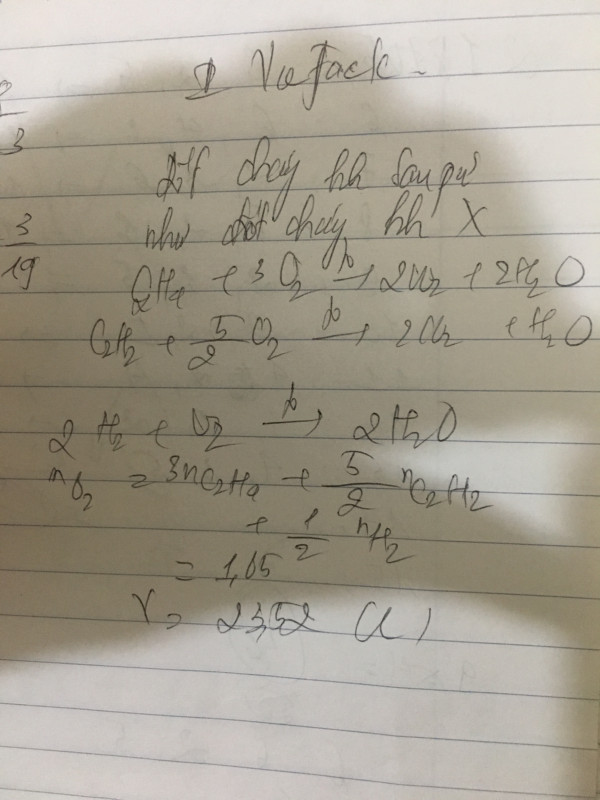 I VieTJack.
2
3
Đốt cháy hh sau pư
như đốt cháy hh X
3
19
C2H4 + 3O2 to→ 2CO2 + 2H2O
C2H2 + 5/2 O2 to→ 2CO2 + H2O
2H2 + O2 to→ 2H2O
nO2 = 3nC2H4 + 5/2 nC2H2
+ 1/2 nH2
= 1,05
V = 23,52 (l)